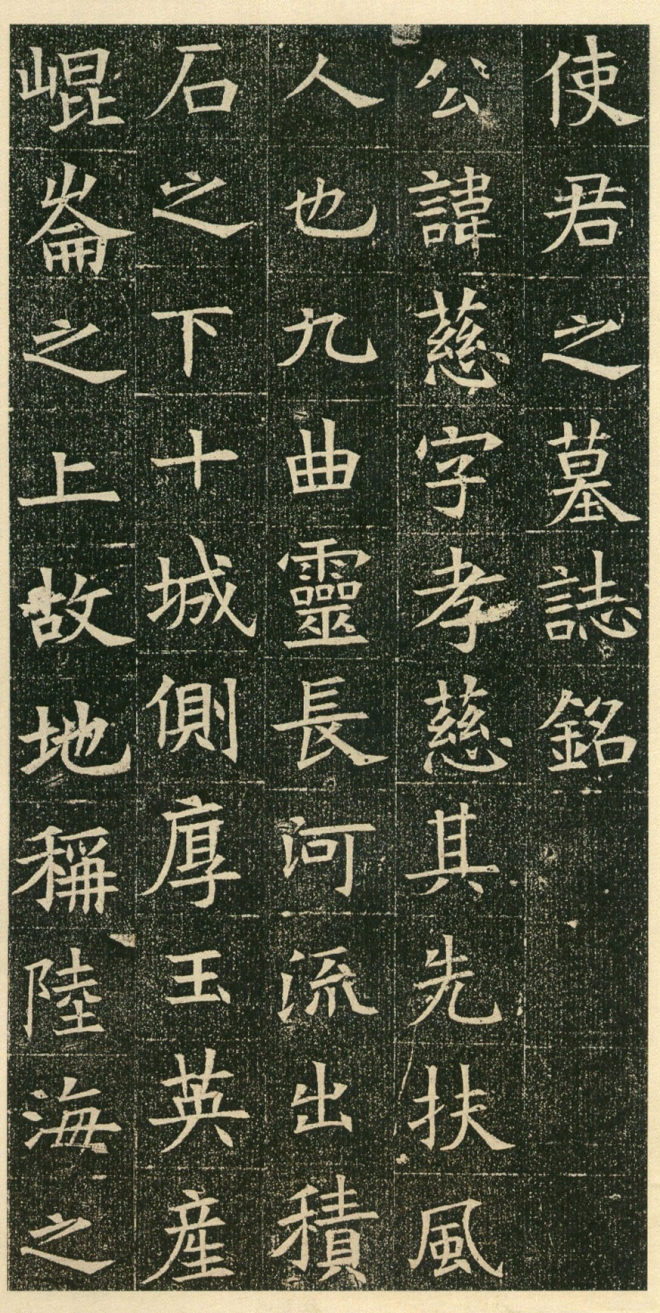 使君之墓誌銘
公諱慈字孝慈其先扶風
人也九曲靈長河流出積
石之下十城側厚玉英產
崐崙之上故地稱陸海之